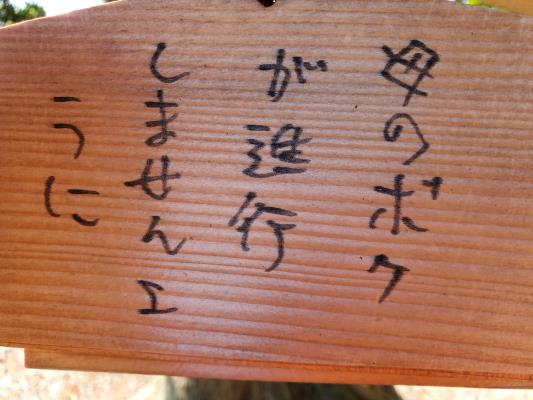 母のボケ
が進行
しませんよ
うに